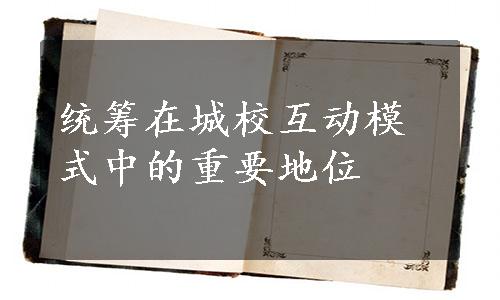 统筹在城校互动模
式中的重要地位